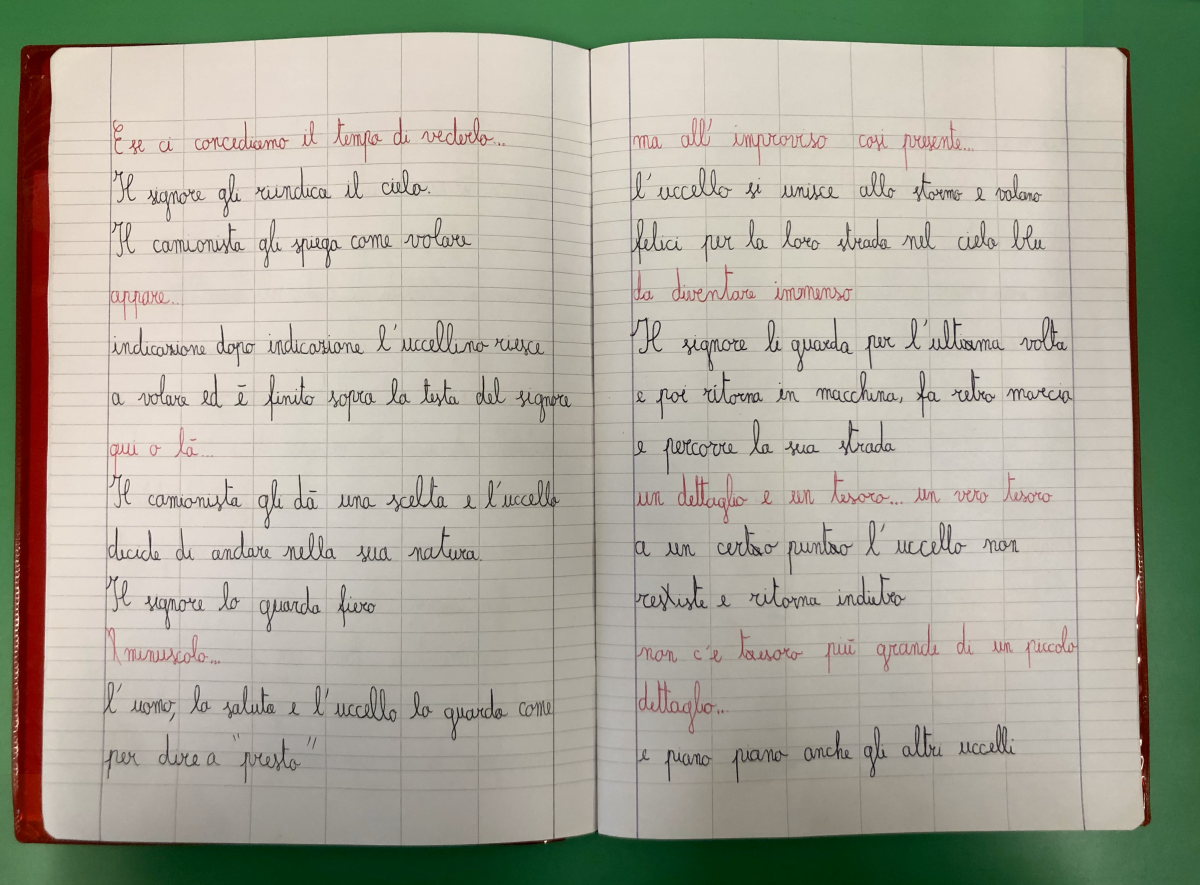 E se ci concediamo il tempo di vederlo...
Il signore gli riundica il cielo.
Il camionista gli spiega come volare
appare...
indicazione dopo indicazione l'uccellino riesce
a volare ed è finito sopra la testa del signore
qui o là...
Il camionista gli dà una scelta e l'uccello
decide di andare nella sua natura.
Il signore lo guarda fiero
minuscolo...
l'uomo, lo saluta e l'uccello lo guarda come
per dire a "presto"
ma all'improvviso così presente...
l'uccello si unisce allo stormo e volano
felici per la loro strada nel cielo blu
da diventare immenso
Il signore li guarda per l'ultima volta
e poi ritorna in macchina, fa retro marcia
e percorre la sua strada
un dettaglio e un tesoro... un vero tesoro
a un certo punto l'uccello non
resiste e ritorna indietro
non c'e tesoro più grande di un piccolo
dettaglio...
e piano piano anche gli altri uccelli